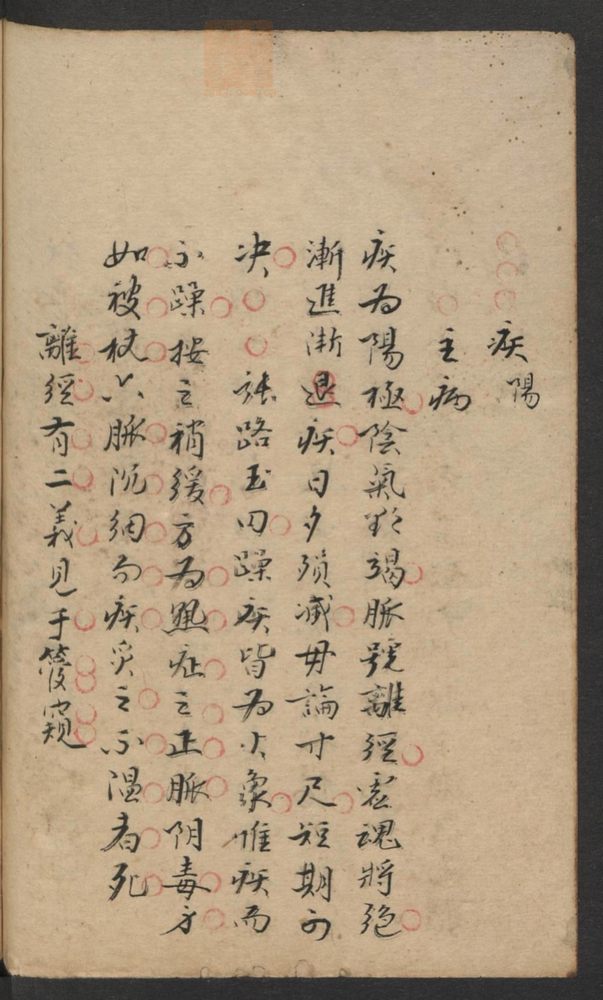 疾 陽
主病
疾為陽極陰氣欲竭脈號離經虛魂將絕
漸進漸退疾日夕殞滅毋論寸尺短期可
决 張路玉曰躁疾皆為火象惟疾而
不躁按之稍緩方為熱症之正脈阴毒身
如被杖六脈沉細而疾灸之不温者死
離經有二義見于管窺